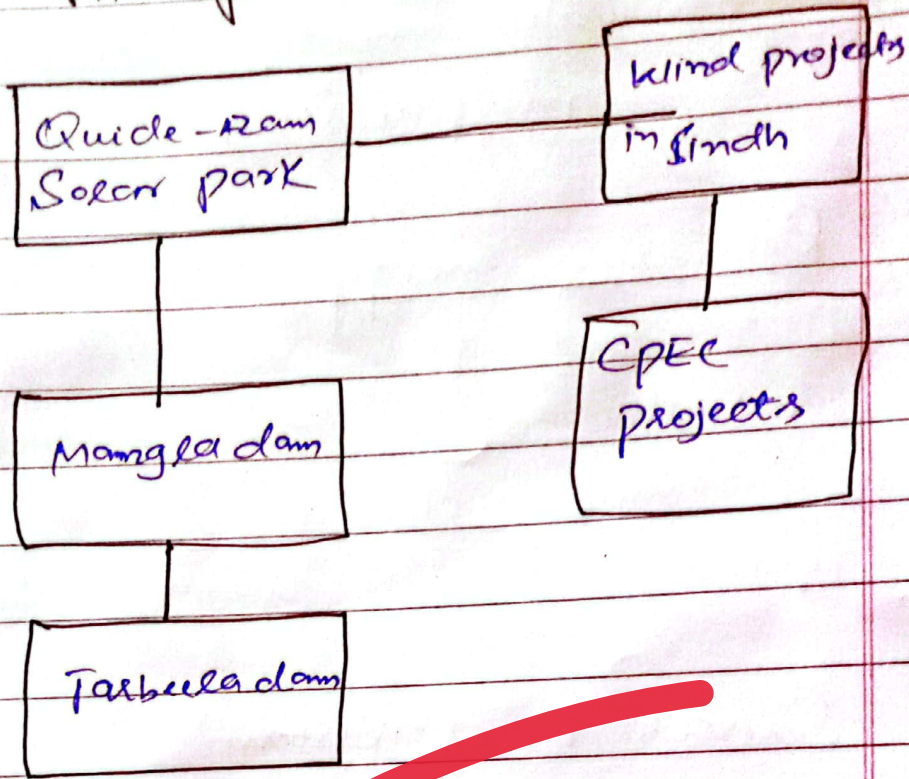 Quide-Azam
Solar park
Wind projects
in Sindh
Mangla dam
CPEC
projects
Tarbeela dam